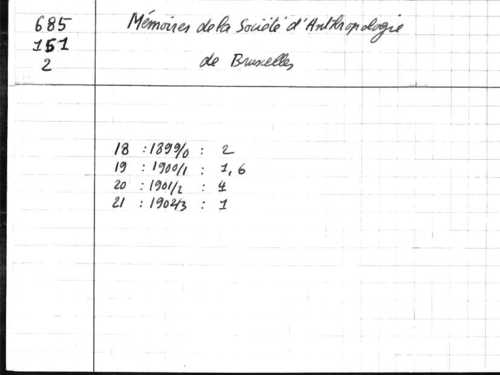 685
151
2
Mémoires de la Société d'Anthropologie
de Bruxelles
18 : 1899/0 : 2
19 : 1900/1 : 1, 6
20 : 1901/2 : 4
21 : 1902/3 : 1